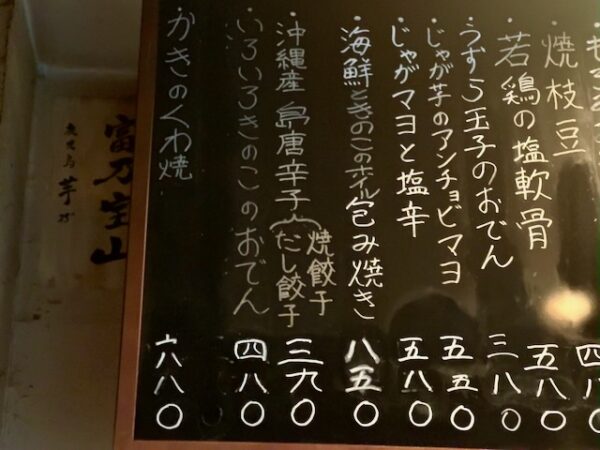 ・焼枝豆 五八〇
・若鶏の塩軟骨 三八〇
・うずら玉子のおでん 五五〇
・じゃが芋のアンチョビマヨ 五八〇
じゃがマヨと塩辛
・海鮮ときのこのホイル包み焼き 八五〇
・沖縄産 島唐辛子(焼餃子 三九〇
だし餃子
・いろいろきのこのおでん 四八〇
・かきのくわ焼 六八〇
富乃宝山
鹿児島 芋